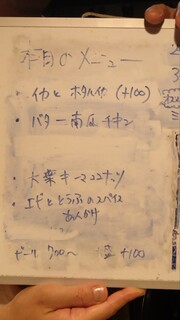 本日のメニュー
・イカとホタルイカ (+100)
・バター南瓜チキン
・大葉キーマココナッツ
・エビととうふのスパイス
あんかけ
ビール 700〜 +100
2
3